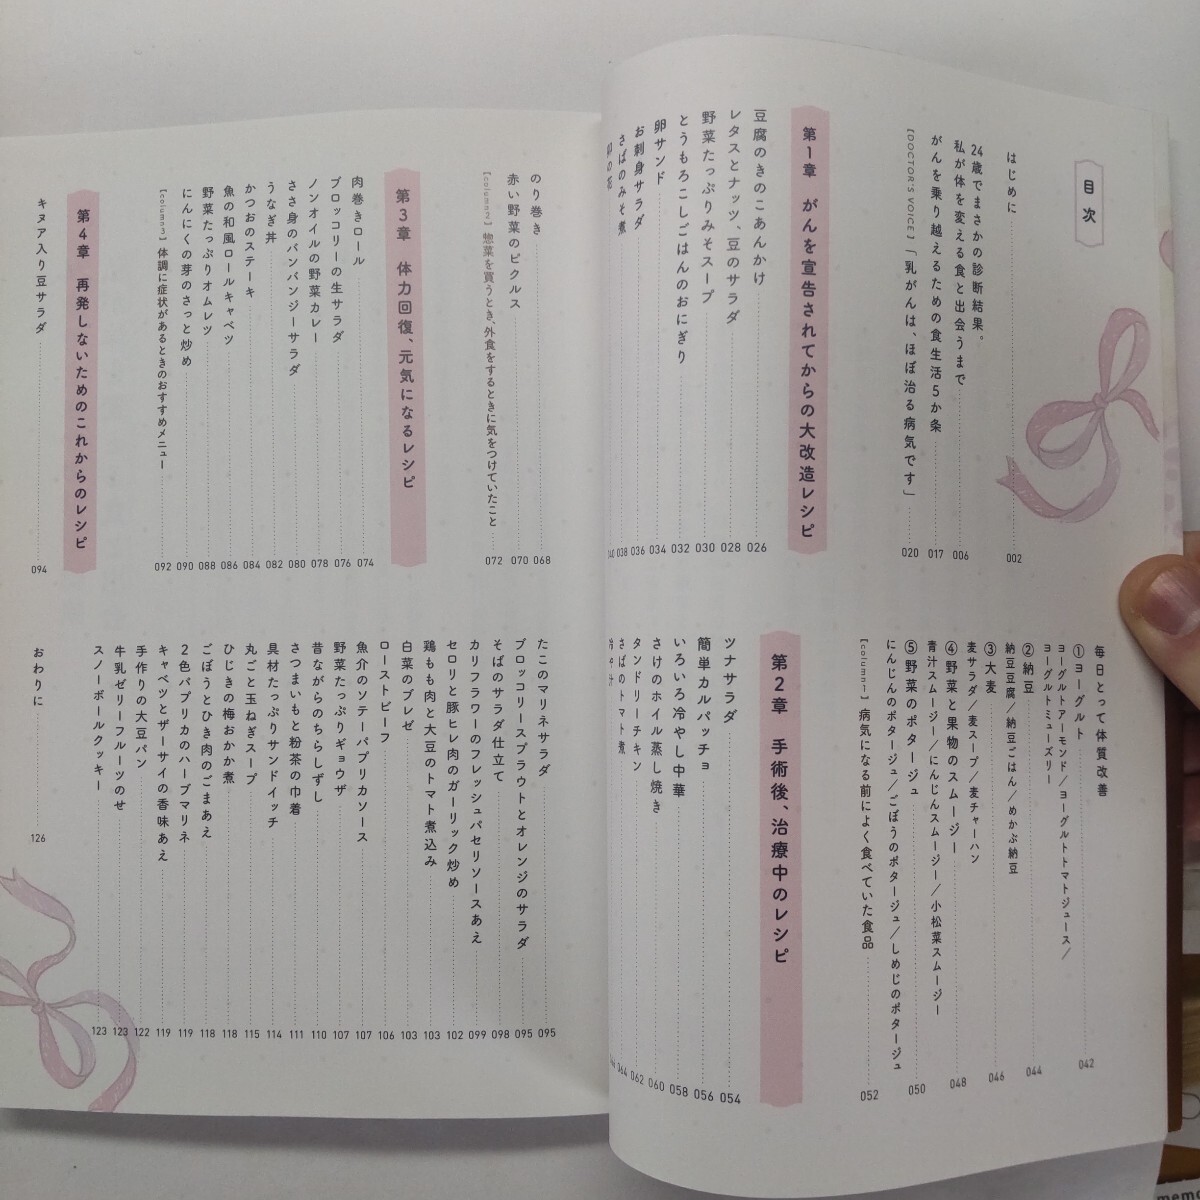 目次
はじめに 002
24歳でまさかの診断結果。
私が体を変える食と出会うまで 006
がんを乗り越えるための食生活5か条 017
【DOCTOR'S VOICE】「乳がんは、ほぼ治る病気です」 020
第1章 がんを宣告されてからの大改造レシピ
豆腐のきのこあんかけ 026
レタスとナッツ、豆のサラダ 028
野菜たっぷりみそスープ 030
とうもろこしごはんのおにぎり 032
卵サンド 034
お刺身サラダ 036
さばのみそ煮 038
毎日とって体質改善
①ヨーグルト 042
ヨーグルトアーモンド/ヨーグルトトマトジュース/
ヨーグルトミューズリー
②納豆 044
納豆豆腐/納豆ごはん/めかぶ納豆
③大麦 046
麦サラダ/麦スープ/麦チャーハン
④野菜と果物のスムージー 048
青汁スムージー/にんじんスムージー/小松菜スムージー
⑤野菜のポタージュ 050
にんじんのポタージュ/ごぼうのポタージュ/しめじのポタージュ
【column1】病気になる前によく食べていた食品 052
第2章 手術後、治療中のレシピ
ツナサラダ 054
簡単カルパッチョ 056
いろいろ冷やし中華 058
さけのホイル蒸し焼き 060
タンドリーチキン 062
さばのトマト煮 064
のり巻き 068
赤い野菜のピクルス 070
【column2】惣菜を買うとき、外食をするときに気をつけていたこと 072
第3章 体力回復、元気になるレシピ
肉巻きロール 074
ブロッコリーの生サラダ 076
ノンオイルの野菜カレー 078
ささ身のバンバンジーサラダ 080
うなぎ丼 082
かつおのステーキ 084
魚の和風ロールキャベツ 086
野菜たっぷりオムレツ 088
にんにくの芽のさっと炒め 090
【column3】体調に症状があるときのおすすめメニュー 092
第4章 再発しないためのこれからのレシピ
キヌア入り豆サラダ 094
たこのマリネサラダ 095
ブロッコリースプラウトとオレンジのサラダ 095
そばのサラダ仕立て 098
カリフラワーのフレッシュパセリソースあえ 099
セロリと豚ヒレ肉のガーリック炒め 102
鶏もも肉と大豆のトマト煮込み 103
白菜のブレゼ 103
ローストビーフ 106
魚介のソテーパプリカソース 107
野菜たっぷりギョウザ 107
昔ながらのちらしずし 110
さつまいもと粉茶の巾着 111
具材たっぷりサンドイッチ 114
丸ごと玉ねぎスープ 115
ひじきの梅おかか煮 118
ごぼうとひき肉のごまあえ 118
2色パプリカのハーブマリネ 119
キャベツとザーサイの香味あえ 119
手作りの大豆パン 122
牛乳ゼリーフルーツのせ 123
スノーボールクッキー 123
おわりに 126